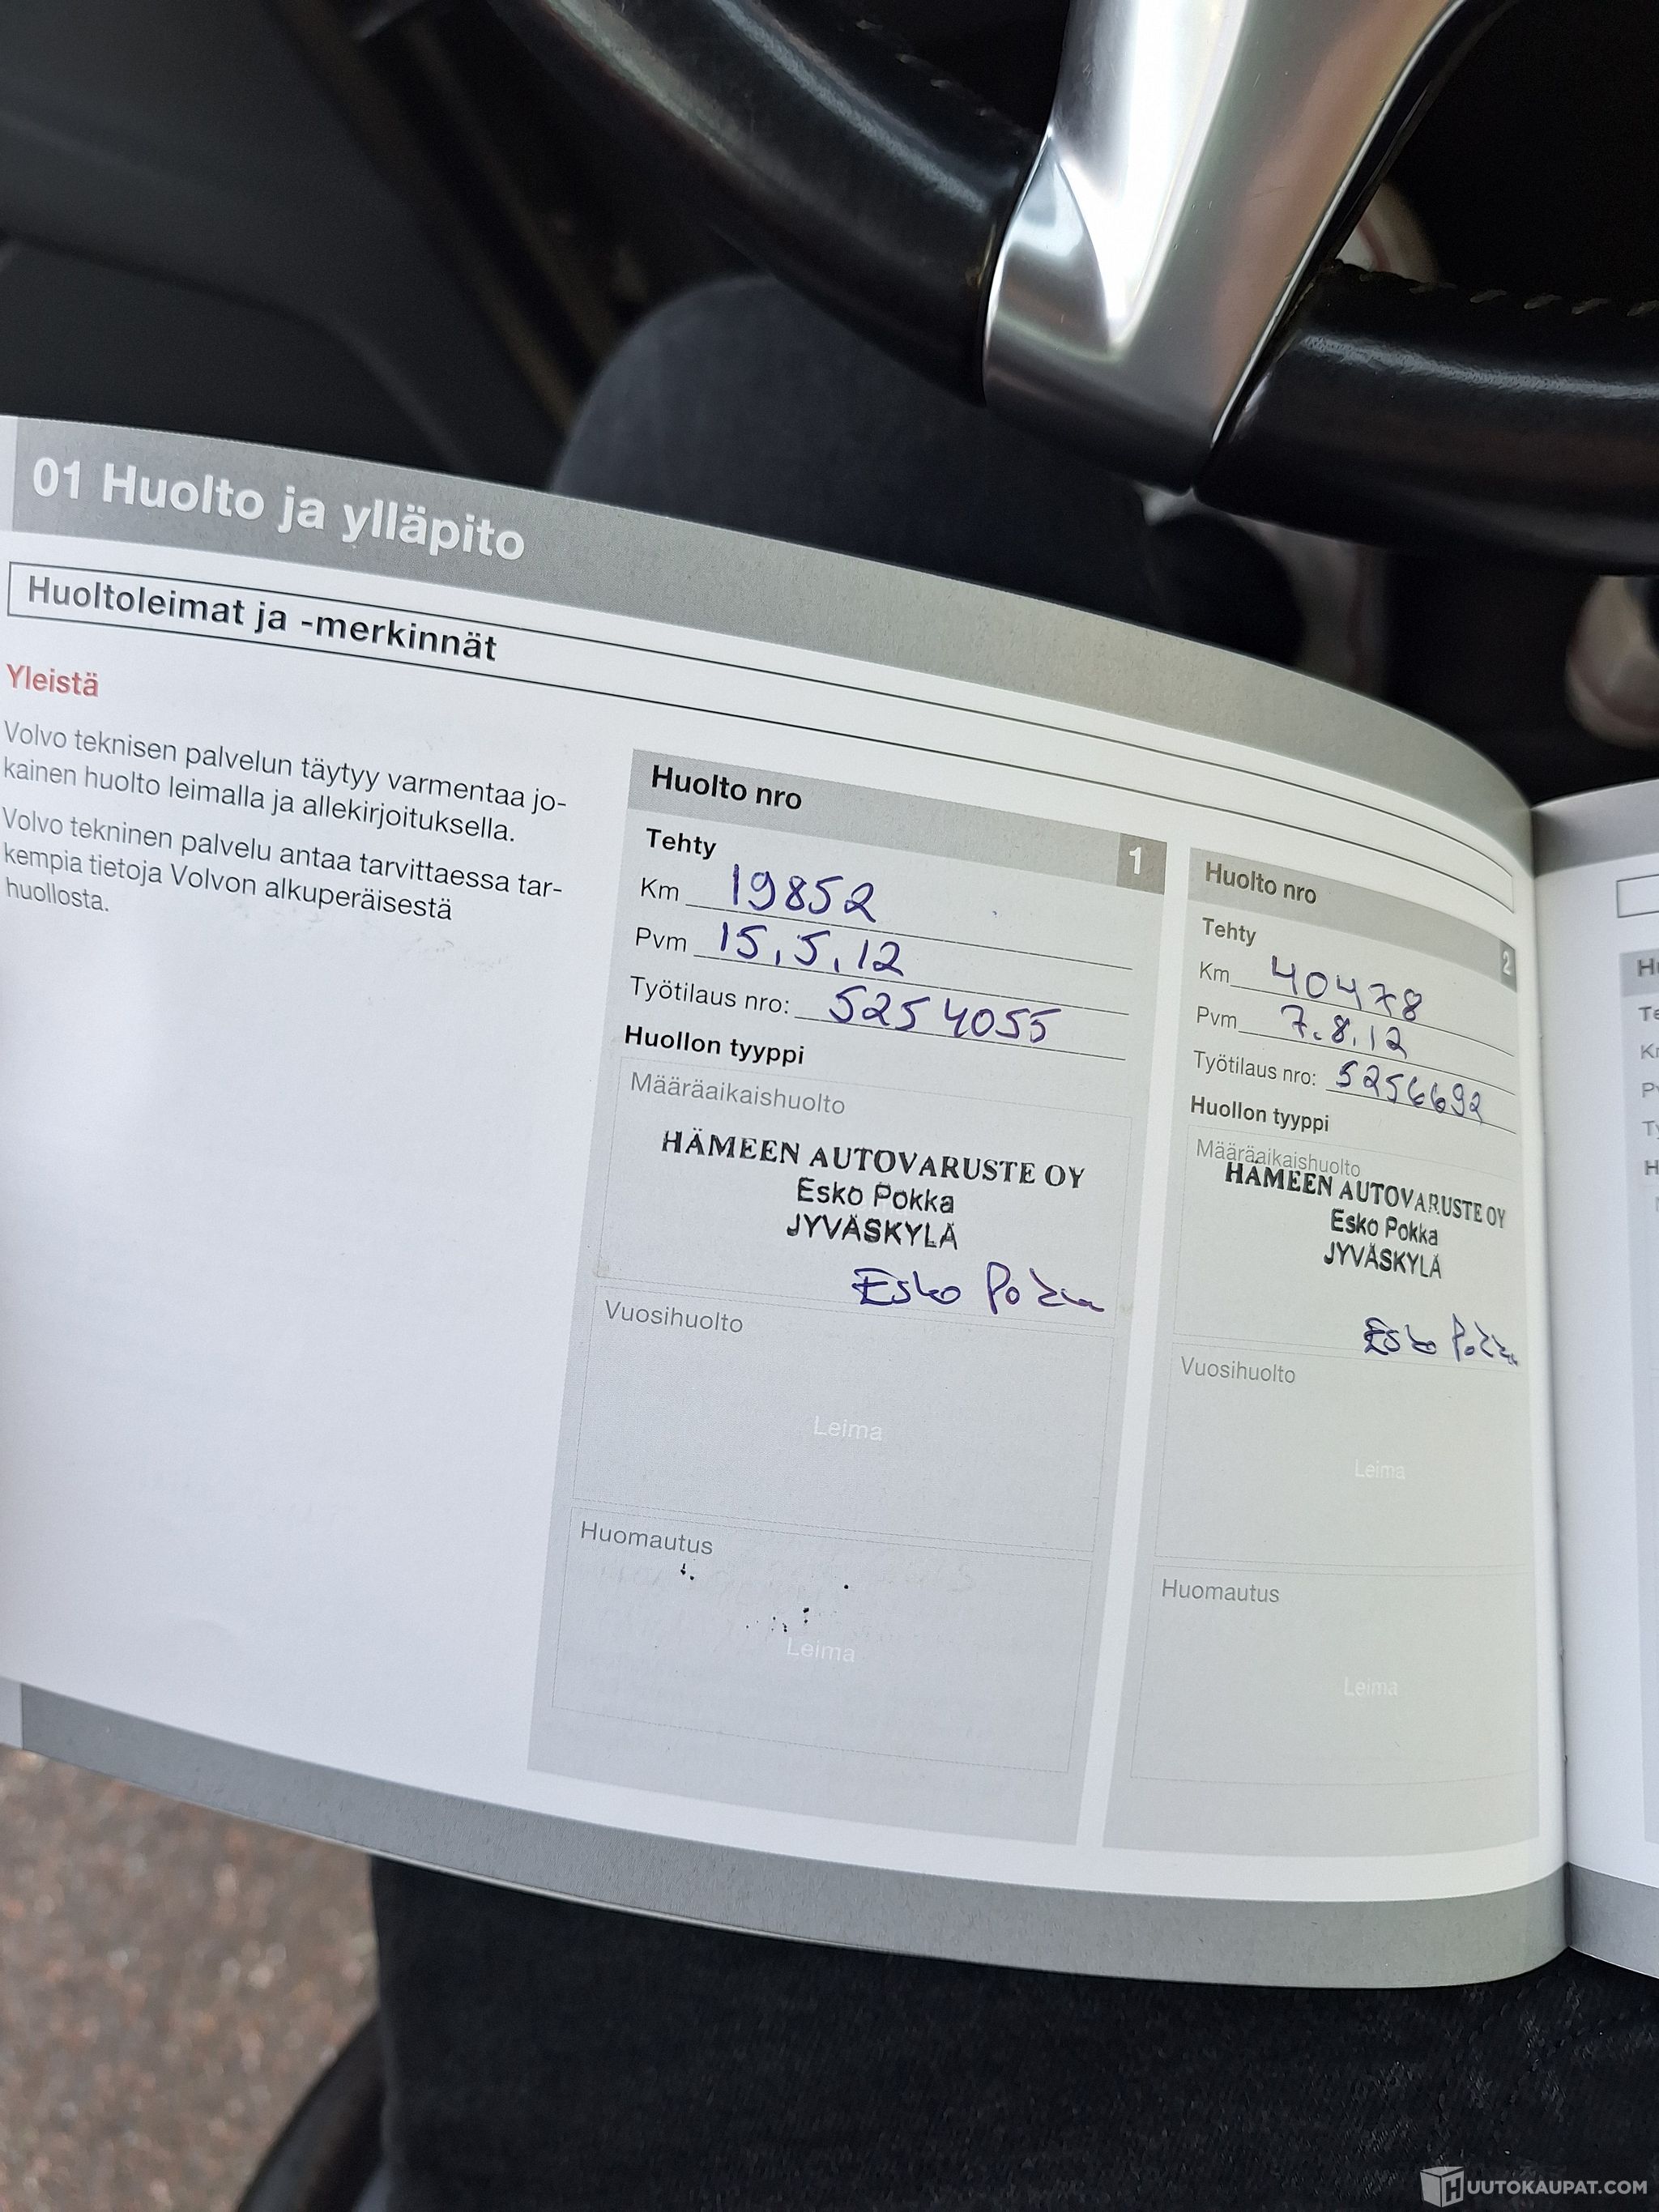 01 Huolto ja ylläpito
Huoltoleimat ja -merkinnät
Yleistä
Volvo teknisen palvelun täytyy varmentaa jo-
kainen huolto leimalla ja allekirjoituksella.
Volvo tekninen palvelu antaa tarvittaessa tar-
kempia tietoja Volvon alkuperäisestä
huollosta.
Huolto nro 1
Tehty
Km 19852
Pvm 15.5.12
Työtilaus nro: 5254055
Huollon tyyppi
Määräaikaishuolto
HÄMEEN AUTOVARUSTE OY
Esko Pokka
JYVÄSKYLÄ
Esko Pokka
Vuosihuolto
Leima
Huomautus
Leima
Huolto nro 2
Tehty
Km 40478
Pvm 7.8.12
Työtilaus nro: 5256692
Huollon tyyppi
Määräaikaishuolto
HÄMEEN AUTOVARUSTE OY
Esko Pokka
JYVÄSKYLÄ
Esko Pokka
Vuosihuolto
Leima
Huomautus
Leima
HUUTOKAUPAT.COM